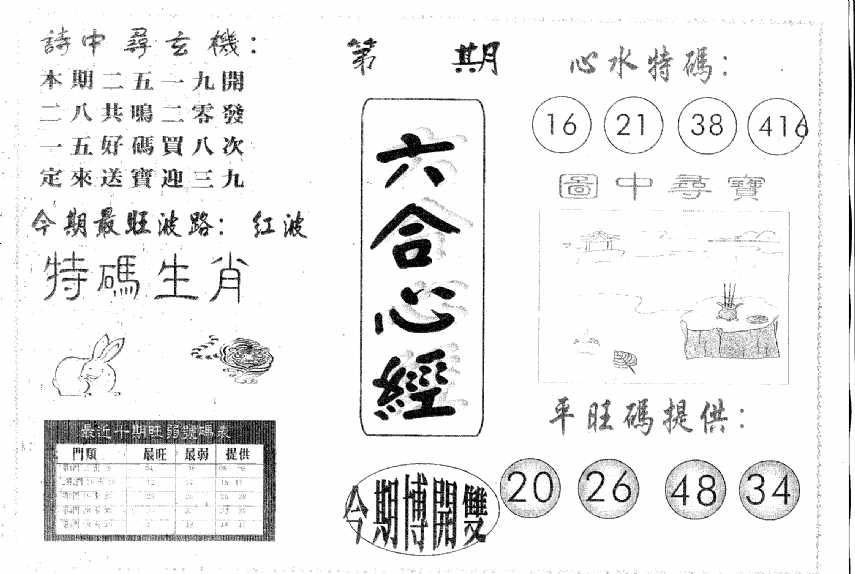 詩中尋玄機：
本期二五一九開
二八共鳴二零發
一五好碼買八次
定來送寶迎三九
今期最旺波路：紅波
特碼生肖
最近十期旺弱號碼表
門類 最旺 最弱 提供
第 期
六合心經
今期博開雙
心水特碼：
16 21 38 416
圖中尋寶
平旺碼提供：
20 26 48 34